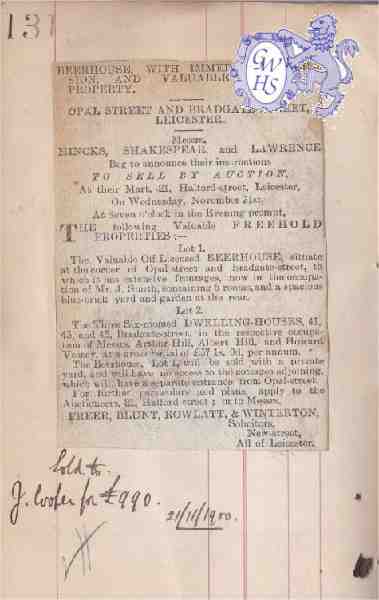 131
GWHS
BEERHOUSE, WITH
SION, AND VALUABLE
PROPERTY.
OPAL STREET AND BRADGATE STREET,
LEICESTER.
Messrs.
HINCKS, SHAKESPEAR and LAWRENCE
Beg to announce their instructions
TO SELL BY AUCTION,
At their Mart, Halford-street, Leicester,
On Wednesday, November 21st,
At Seven o'clock in the Evening prompt,
THE following Valuable FREEHOLD
PROPERTIES:—
Lot 1.
The Valuable Off-Licensed BEERHOUSE, situate
at the corner of Opal-street and Bradgate-street, to
which it has extensive frontages, now in the occupa-
tion of Mr. J. Smith, containing rooms, and a spacious
blue-brick yard and garden at the rear.
Lot 2.
The Three Six-roomed DWELLING-HOUSES, 41,
43, and 45, Bradgate-street, in the respective occupa-
tions of Messrs. Arthur Hill, Albert Hill, and Howard
at a gross rental of £57 1s. per annum.
The Beerhouse, Lot 1, will be sold with a private
yard, and will have no access to the cottages adjoining,
which will have a separate entrance from Opal-street.
For further particulars and plans, apply to the
Auctioneers, Halford-street; or to Messrs.
FREER, BLUNT, ROWLATT, & WINTERTON,
Solicitors,
New-street,
All of Leicester.
Sold to
J. Cooper for £990.
21/11/1900.